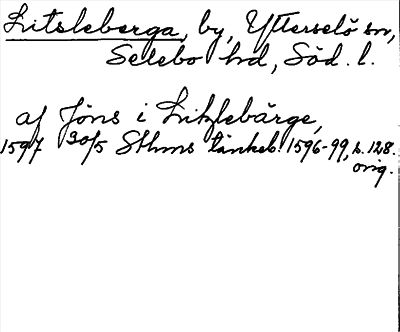 Litsleberga, by, Ytterselö sn,
Selebo hd, Söd. l.
af Jöns i Litzlebärge,
1597 30/5 Sthms tänkeb. 1596-99, s. 128.
orig.